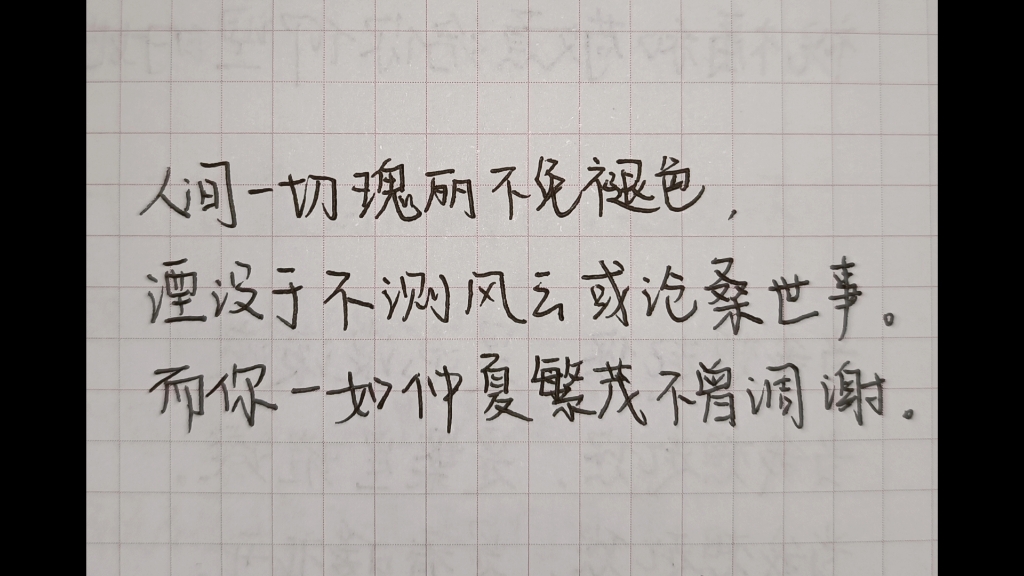 人间一切瑰丽不免褪色，
湮没于不测风云或沧桑世事。
而你一如仲夏繁茂不曾凋谢。